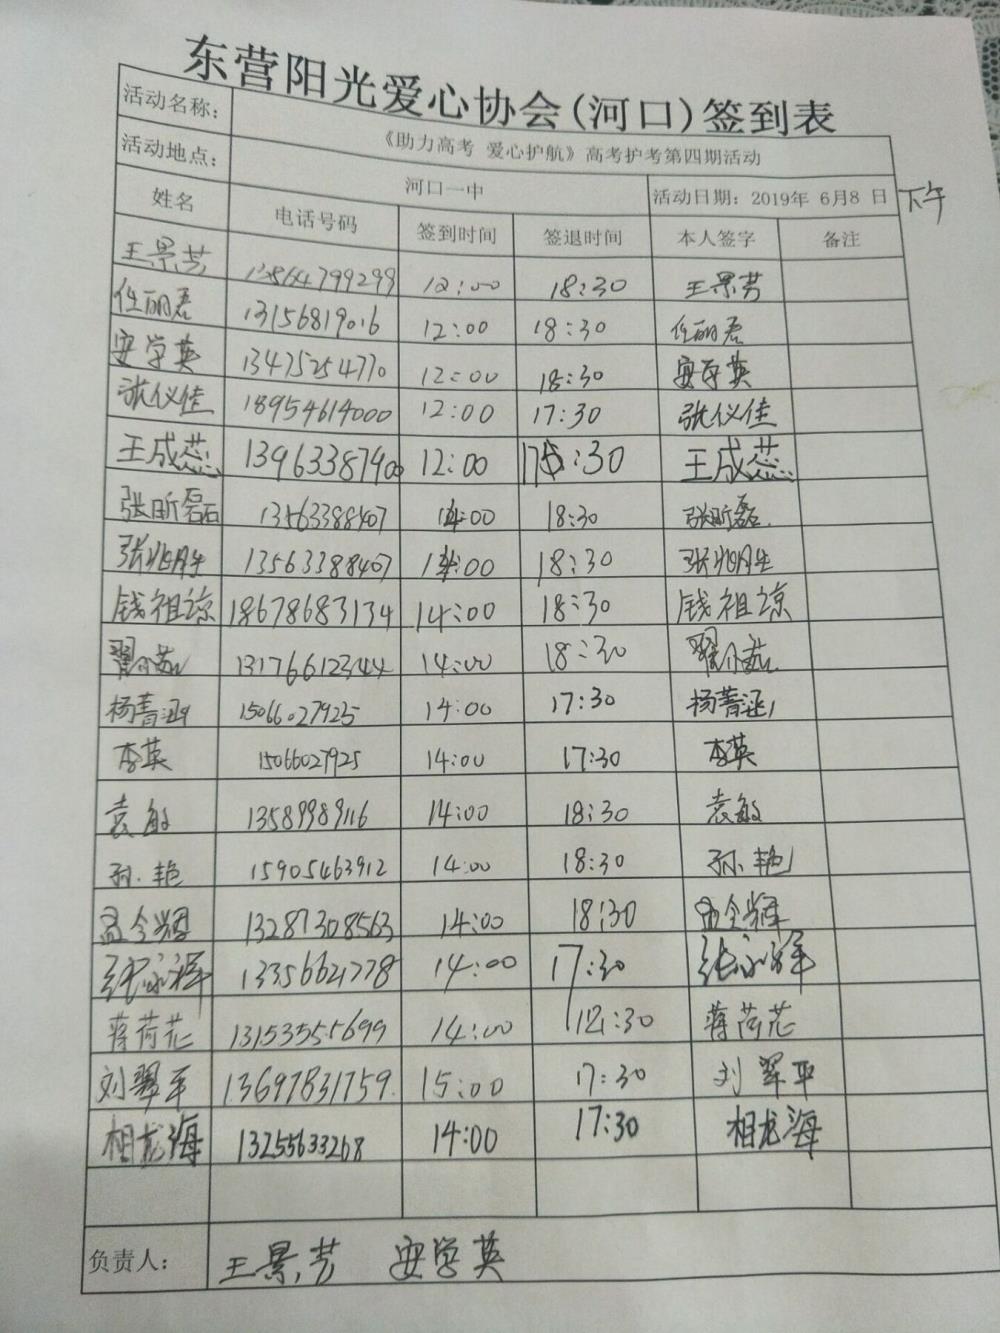 东营阳光爱心协会(河口)签到表
活动名称： 《助力高考 爱心护航》高考护考第四期活动
活动地点： 河口一中 活动日期：2019年 6月8 日 下午
姓名 电话号码 签到时间 签退时间 本人签字 备注
王景芳 13564799299 12:00 18:30 王景芳
任丽君 13156819016 12:00 18:30 任丽君
安学英 13475254770 12:00 18:30 安学英
张仪佳 18954614000 12:00 17:30 张仪佳
王成蕊 13963387900 12:00 :30 王成蕊
张昕磊 13563388407 14:00 18:30 张昕磊
张兆胜 13563388407 14:00 18:30 张兆胜
钱祖谅 18678683134 14:00 18:30 钱祖谅
13176612344 14:00 18:30
杨菁涵 15066027925 14:00 17:30 杨菁涵
李英 15066027925 14:00 17:30 李英
袁敏 13589989116 14:00 18:30 袁敏
孙艳 15905463912 14:00 18:30 孙艳
孟令辉 13287308563 14:00 18:30 孟令辉
张永祥 13356621778 14:00 17:30 张永祥
蒋荷花 13153555699 14:00 :30 蒋荷花
刘翠平 13697831759 15:00 17:30 刘翠平
相龙海 13255633268 14:00 17:30 相龙海
负责人： 王景芳 安学英